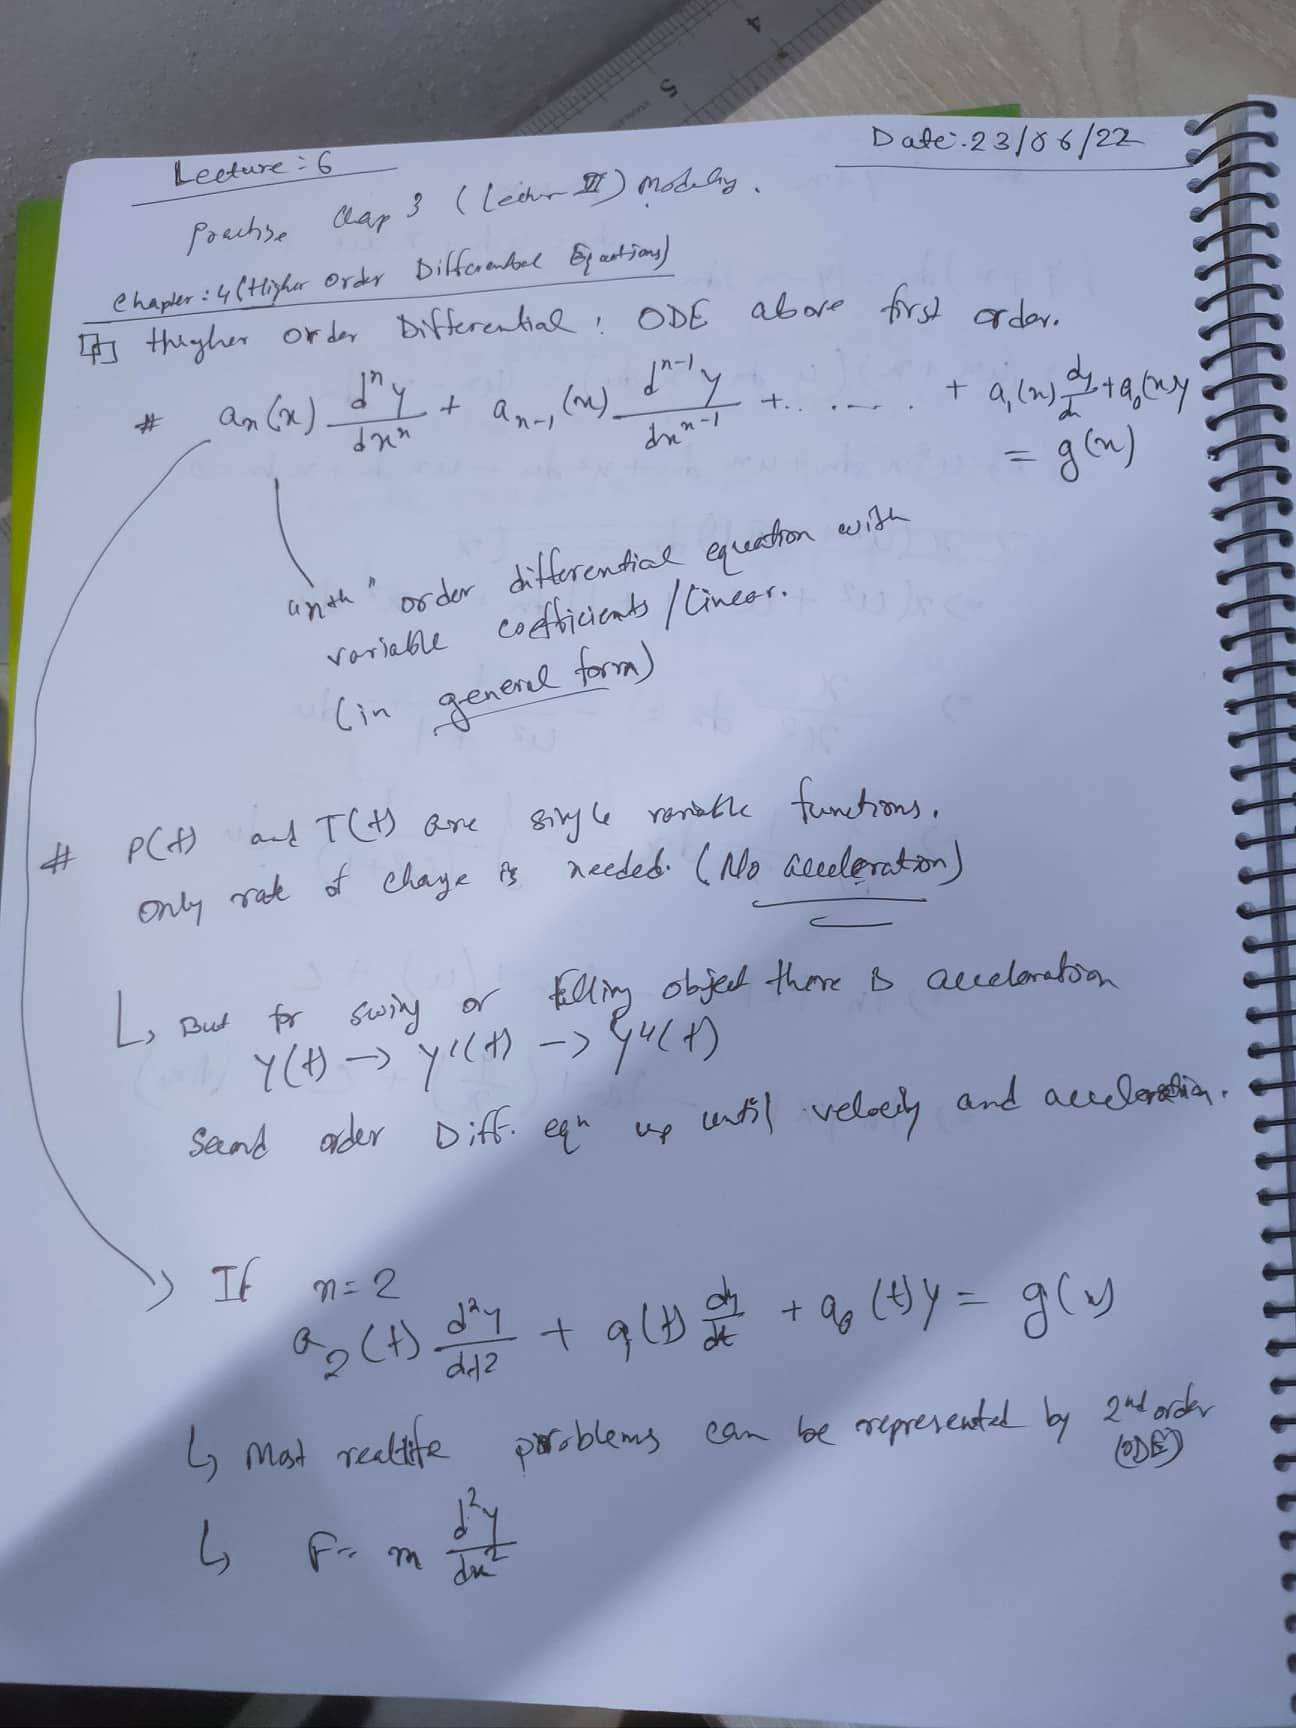 4
5
Lecture: 6
Date: 23/06/22
Practise Chap 3 (Lecture VI) Modeling.
Chapter: 4 (Higher Order Differential Equations)
Higher Order Differential: ODE above first order.
# aₙ(x) dⁿy/dxⁿ + aₙ₋₁(x) dⁿ⁻¹y/dxⁿ⁻¹ + ....... + a₁(x) dy/dx + a₀(x)y
= g(x)
order differential equation with
variable coefficients / Linear.
(in general form)
# P(t) and T(t) are single variable functions.
only rate of change is needed. (No acceleration)
↳ But for swing or falling object there is acceleration
Y(t) → Y'(t) → Y''(t)
Second order Diff. eqⁿ up until velocity and acceleration.
If n = 2
a₂(t) d²y/dt² + a₁(t) dy/dt + a₀(t)y = g(x)
↳ Most reallife problems can be represented by 2nd order
(ODE)
↳ F = m d²y/dx²